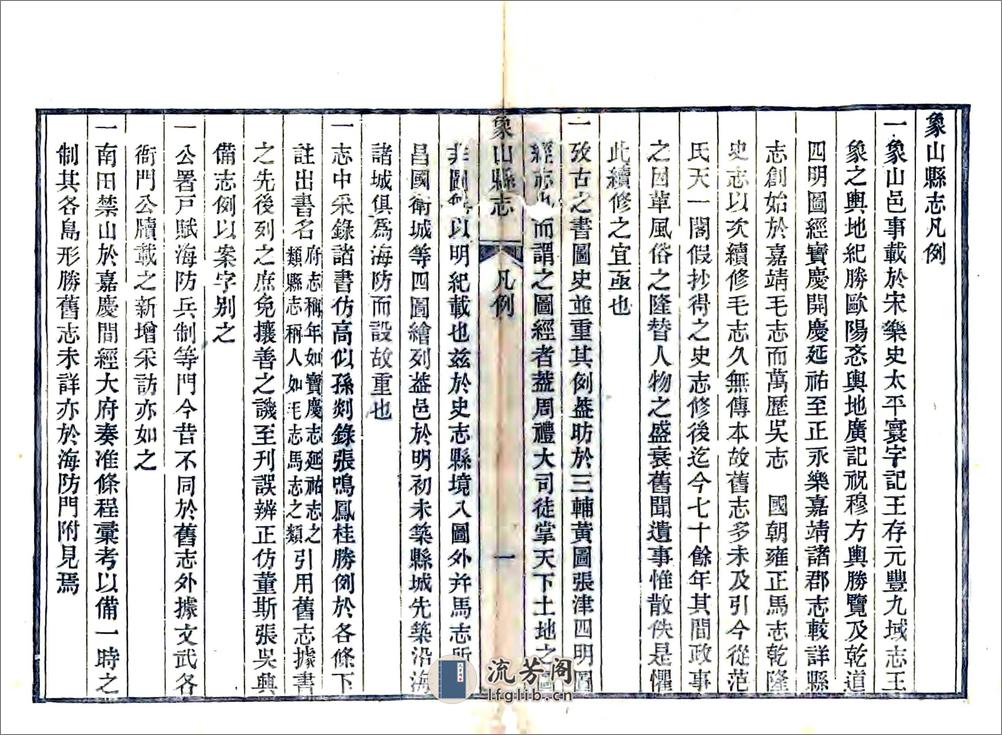 象山縣志凡例
一象山邑事載於宋樂史太平寰宇記王存元豐九域志王
象之輿地紀勝歐陽忞輿地廣記祝穆方輿勝覽及乾道
四明圖經寶慶開慶延祐至正永樂嘉靖諸郡志較詳縣
志創始於嘉靖毛志而萬歷吳志 國朝雍正馬志乾隆
史志以次續修毛志久無傳本故舊志多未及引今從范
氏天一閣假抄得之史志修後迄今七十餘年其間政事
之因革風俗之隆替人物之盛衰舊聞遺事惟散佚是懼
此續修之宜亟也
一攷古之書圖史並重其例葢昉於三輔黃圖張津四明圖
經志也而謂之圖經者葢周禮大司徒掌天下土地之圖
象山縣志 凡例 一
非圖無以明紀載也兹於史志縣境入圖外并馬志所
昌國衛城等四圖繪列葢邑於明初未築縣城先築沿海
諸城俱爲海防而設故重也
一志中采錄諸書仿高似孫剡錄張鳴鳳桂勝例於各條下
註出書名府志稱年如寶慶志延祐志之類縣志稱人如毛志馬志之類引用舊志據書
之先後列之庶免攘善之譏至刊誤辨正仿董斯張吳興
備志例以案字別之
一公署戸賦海防兵制等門今昔不同於舊志外據文武各
衙門公牘載之新增采訪亦如之
一南田禁山於嘉慶間經大府奏准條程彙考以備一時之
制其各島形勝舊志未詳亦於海防門附見焉
流芳阁
lfglib.cn